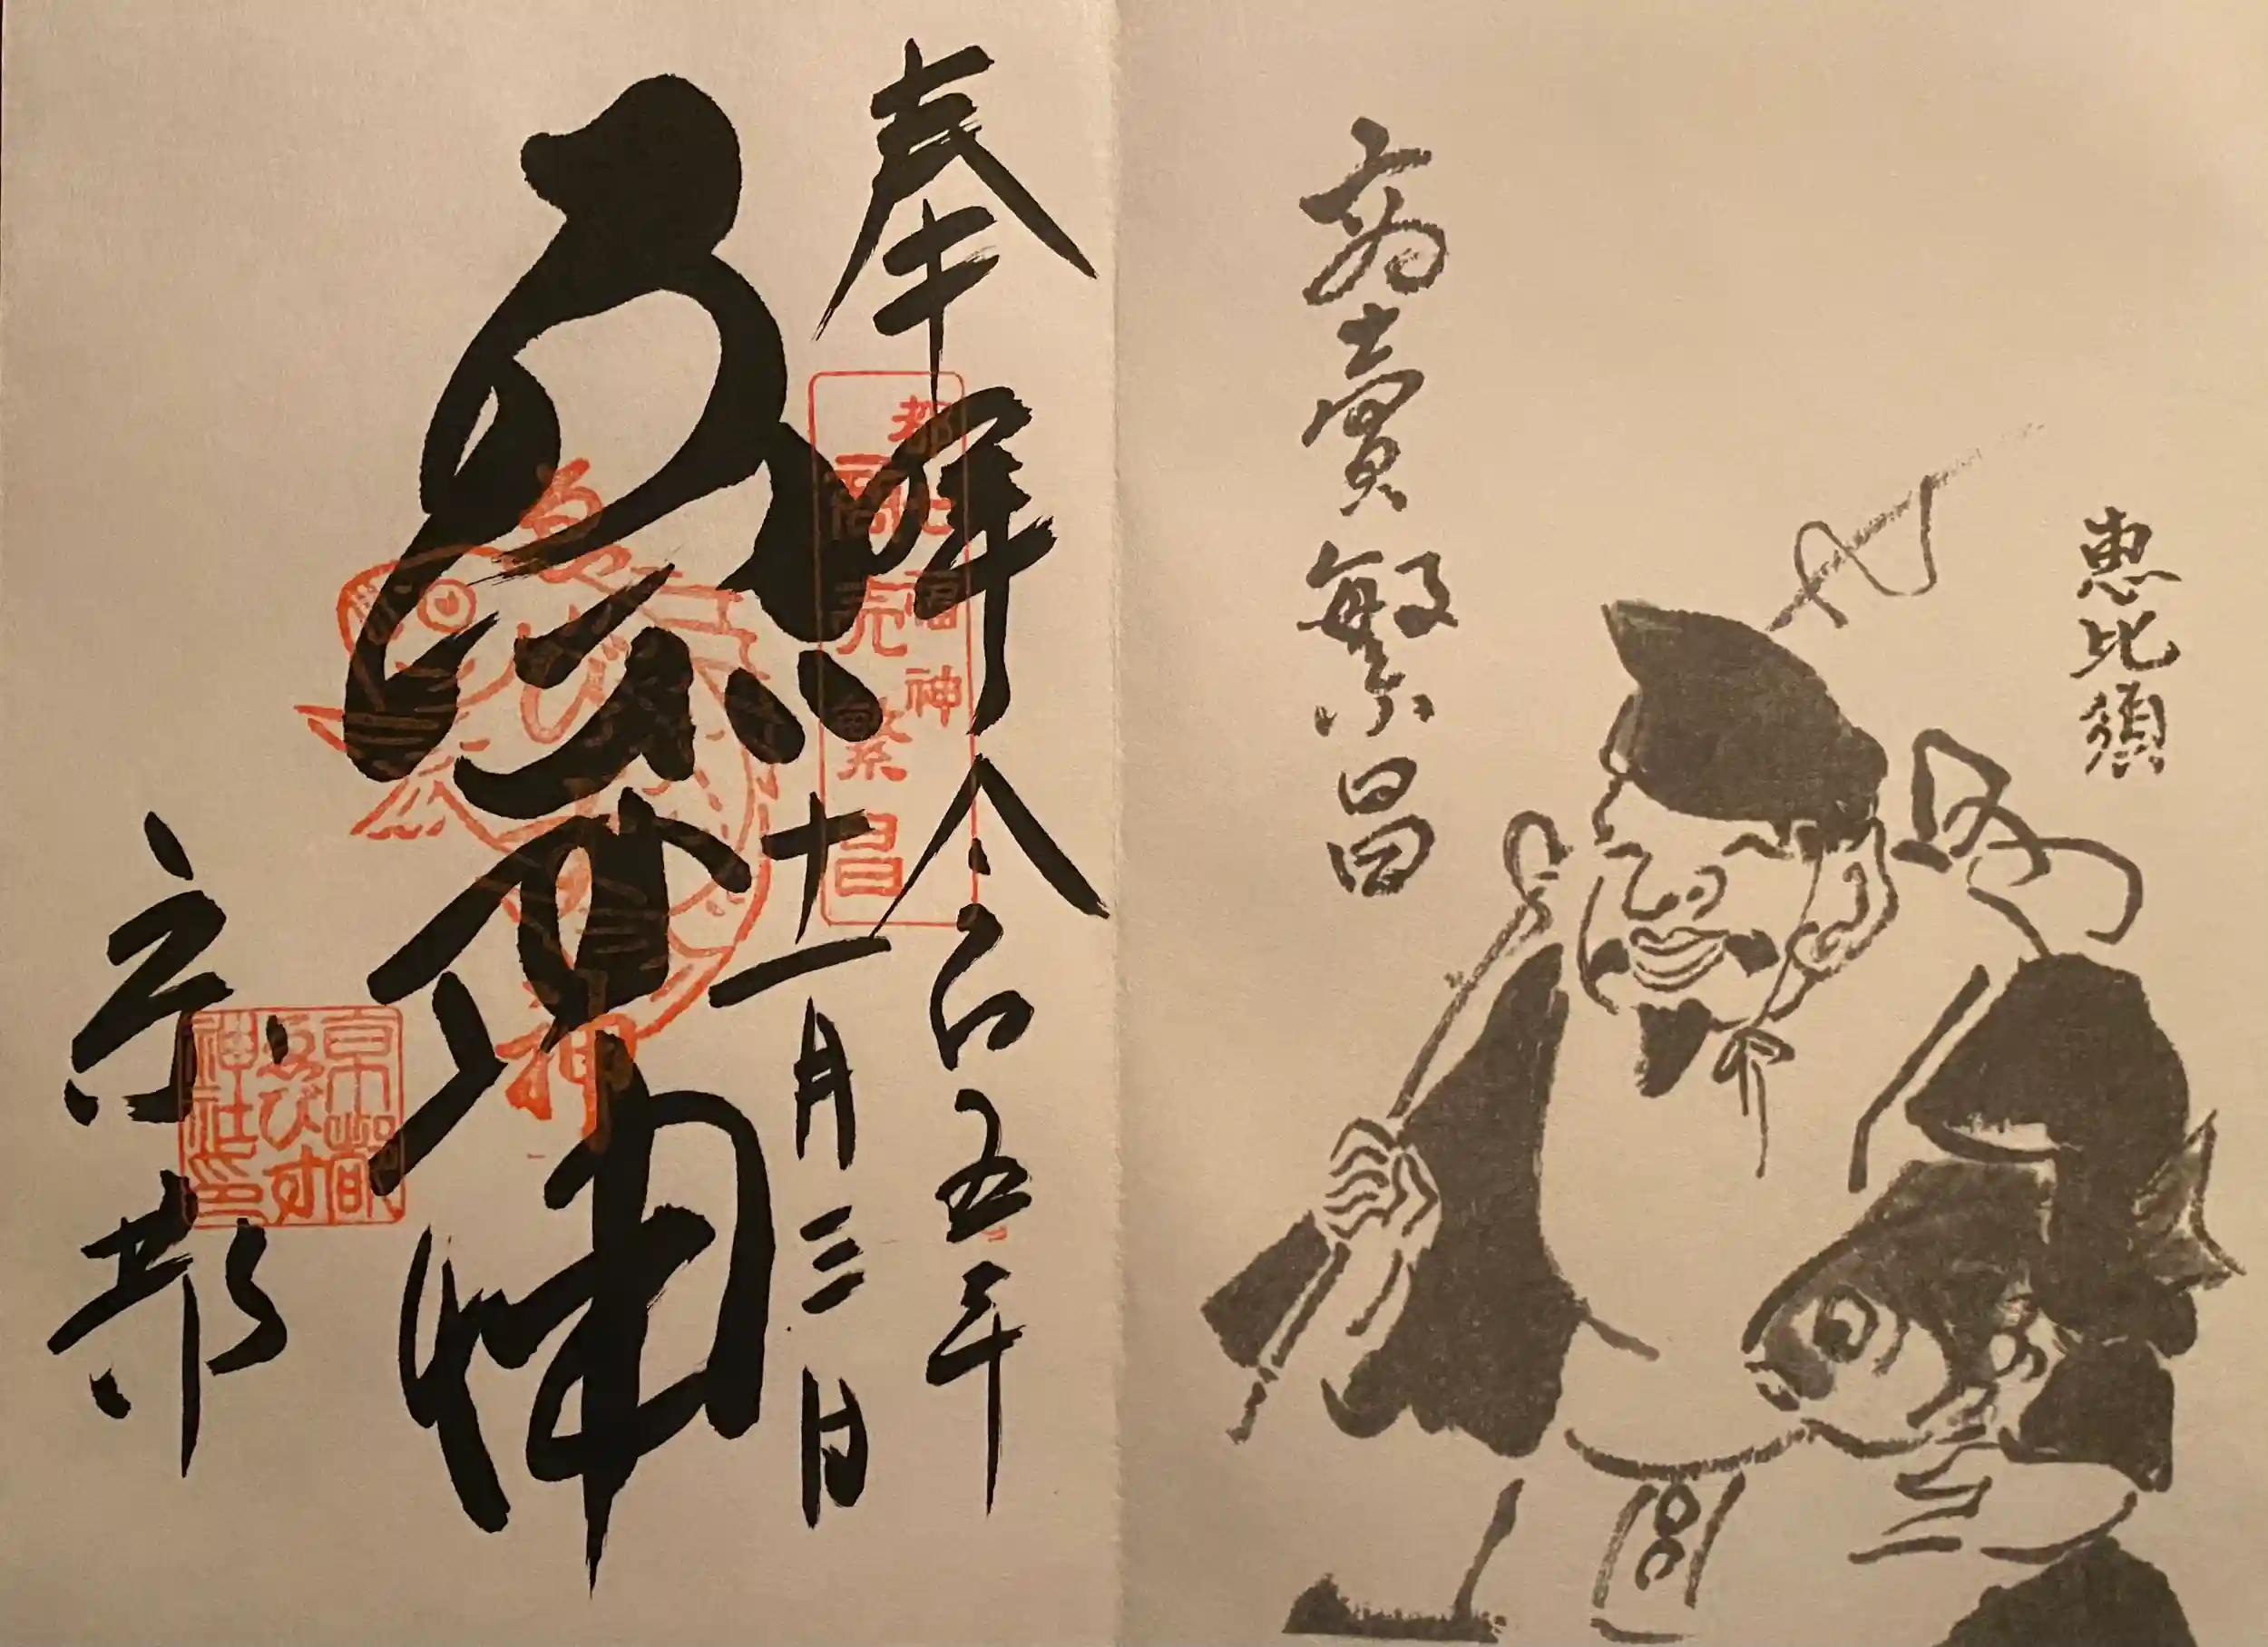 恵比須
商賣繁昌
奉拝 令和五年
十一月三日
都七福神
商売繁昌
ゑびす神
京都
京都
ゑびす
神社印